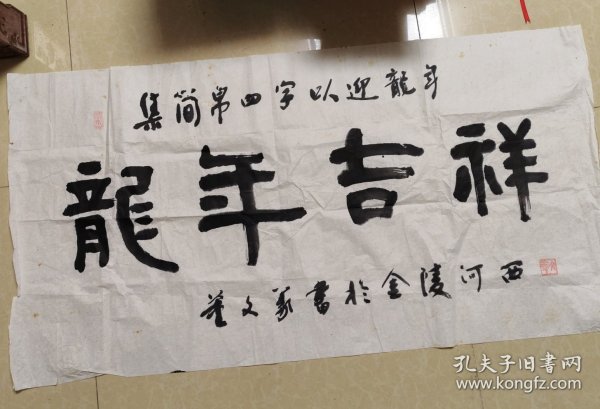 集簡帛四字以迎龍年
龍年吉祥
董文書於金陵河西
孔夫子旧书网
www.kongfz.com